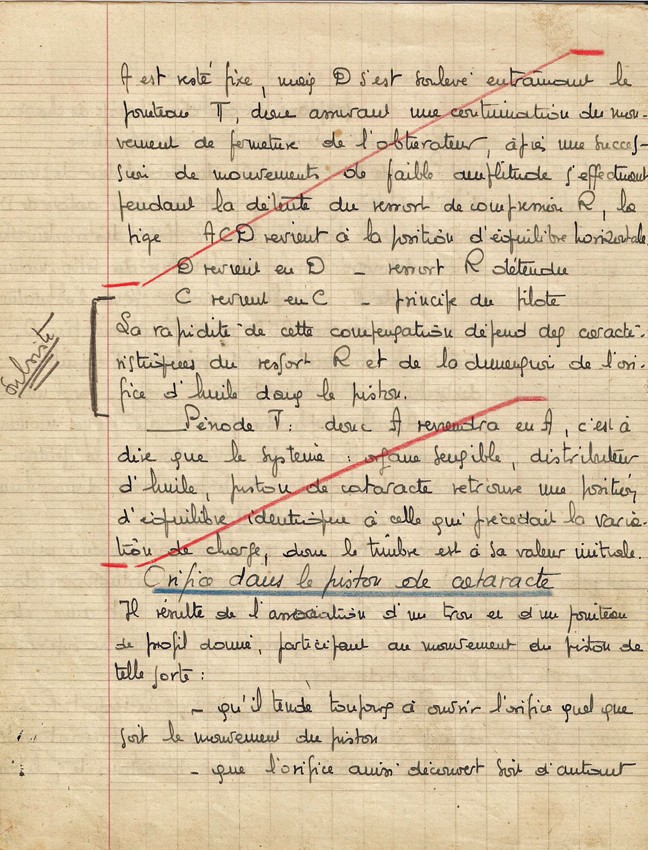 A est resté fixe, mais D s'est soulevé entraînant le
pointeau T, donc assurant une continuation du mou-
vement de fermeture de l'obturateur, après une succes-
sion de mouvements de faible amplitude s'effectuant
pendant la détente du ressort de compression R, la
tige ACD revient à la position d'équilibre horizontale
D revient en D - ressort R détendu
C revient en C - principe du pilote
La rapidité de cette compensation dépend des caracté-
ristiques du ressort R et de la dimension de l'ori-
fice d'huile dans le piston.
Période T : donc A reviendra en A, c'est à
dire que le système : organe sensible, distributeur
d'huile, piston de cataracte retrouve une position
d'équilibre identique à celle qui précédait la varia-
tion de charge, donc le timbre est à sa valeur initiale.
Orifice dans le piston de cataracte
Il résulte de l'association d'un trou et d'un pointeau
de profil donné, participant au mouvement du piston de
telle sorte :
- qu'il tende toujours à ouvrir l'orifice quel que
soit le mouvement du piston
- que l'orifice ainsi découvert soit d'autant